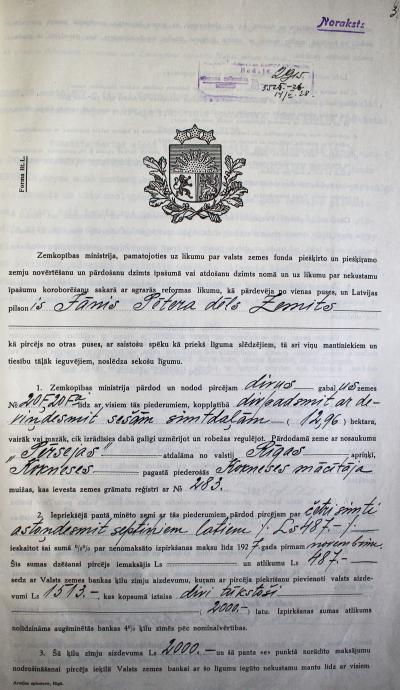 3.
Noraksts
2915.
5526.-26
14/I.28.
Forma lit. L.
Zemkopības ministrija, pamatojoties uz likumu par valsts zemes fonda piešķirto un piešķiramo
zemju novērtēšanu un pārdošanu dzimts īpašumā vai atdošanu dzimts nomā un uz likumu par nekustamu
īpašumu koroborēšanu sakarā ar agrarās reformas likumu, kā pārdevēja no vienas puses, un Latvijas
pilsonis Jānis Pētera dēls Zemīts
kā pircējs no otras puses, ar saistošu spēku kā priekš līguma slēdzējiem, tā arī viņu mantiniekiem un
tiesību tāļāk ieguvējiem, noslēdza sekošu līgumu.
1. Zemkopības ministrija pārdod un nodod pircējam divus gabalus zemes
№ 20F, 20Fa līdz ar visiem tās piederumiem, kopplatībā divpadsmit ar de-
viņdesmit sešām simtdaļām ( 12,96 ) hektara,
vairāk vai mazāk, cik izrādīsies dabā galīgi uzmērijot un robežas regulējot. Pārdodamā zeme ar nosaukumu
„Pērsejas" atdalāma no valstij Rīgas apriņķī,
Kokneses pagastā piederošās Kokneses mācītāja
muižas, kas ievesta zemes grāmatu reģistrī ar № 283.
2. Iepriekšējā pantā minēto zemi ar tās piederumiem pārdod pircējam par četri simti
astondesmit septiņiem latiem /: Ls 487.- :/
ieskaitot šai sumā 4% par nenomaksāto izpirkšanas maksu līdz 1927. gada pirmam novembrim.
Šīs sumas dzēšanai pircējs iemaksājis Ls — un atlikumu Ls 487.-
sedz ar Valsts zemes bankas ķīlu zīmju aizdevumu, kuŗam ar pircēja piekrišanu pievienoti valsts aizde-
vumi Ls 1513.-, kas kopsumā iztaisa divi tūkstoši
( 2000.- ) latu. Izpirkšanas sumas atlikums
nolīdzināms augšminētās bankas 4% ķīlu zīmēs pēc nominālvērtības.
3. Šā ķīlu zīmju aizdevuma Ls 2000.- un šā panta «e» punktā norādīto maksājumu
nodrošināšanai pircējs ieķīlā Valsts zemes bankai ar šo līgumu iegūto nekustamu mantu līdz ar visiem